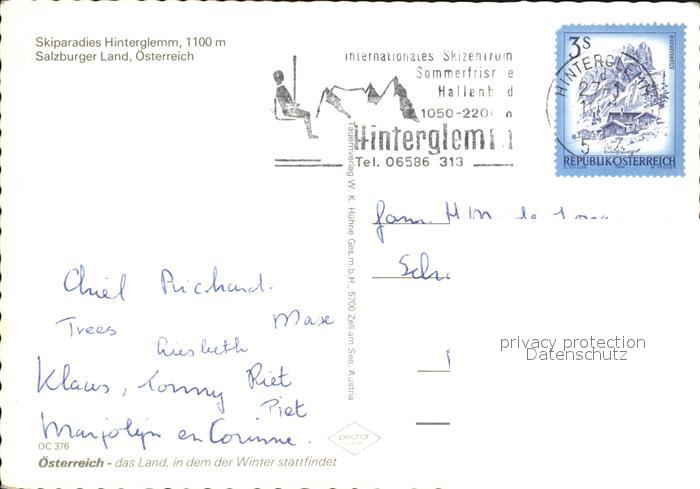 Skiparadies Hinterglemm, 1100 m
Salzburger Land, Österreich
Internationales Skizentrum
Sommerfrische
Hallenbad
1050-220
Hinterglemm
Tel. 06586 313
3 S
REPUBLIK ÖSTERREICH
HINTERGLEMM
Tauernverlag W. K. Hühne Ges.m.b.H., 5700 Zell am See, Austria
Fam. H M de
Chiel Richard.
Trees Max
Liesbeth
Klaus, Conny Riet
Piet
Marjolijn en Corinne.
OC 376
Österreich - das Land, in dem der Winter stattfindet
privacy protection
Datenschutz